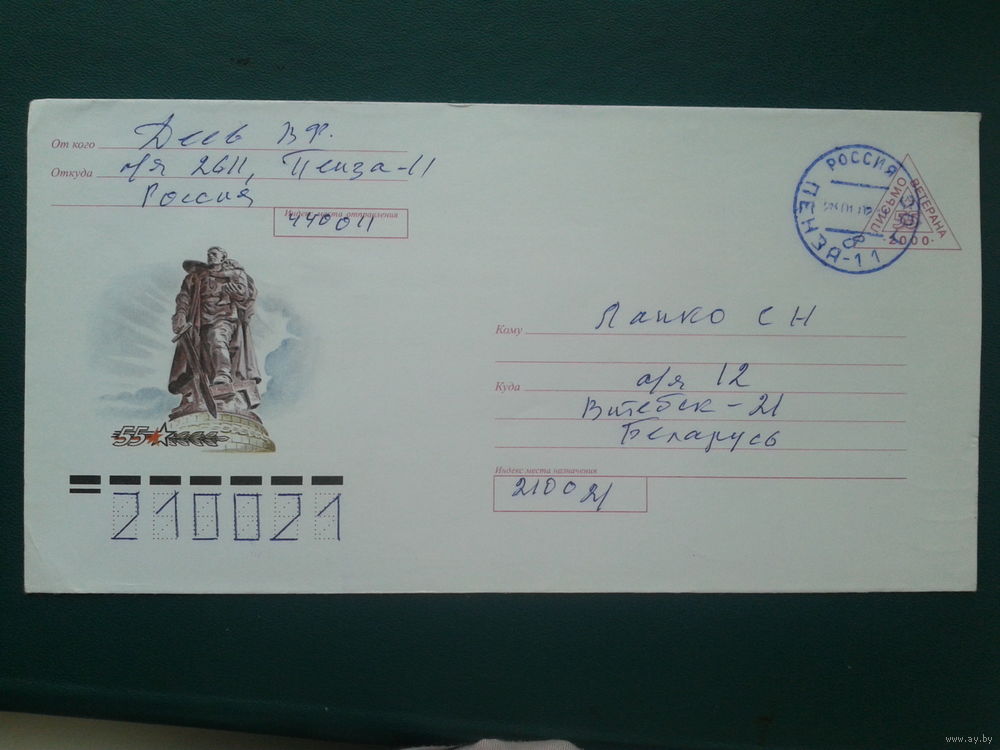 От кого Деев В.Ф.
Откуда а/я 2611, Пенза-11
Россия
Индекс места отправления
440011
РОССИЯ
ПЕНЗА-11
ПИСЬМО ВЕТЕРАНА
55
·2000·
Кому Лапко С Н
Куда а/я 12
Витебск-21
Беларусь
Индекс места назначения
210021
55
210021
www.ay.by